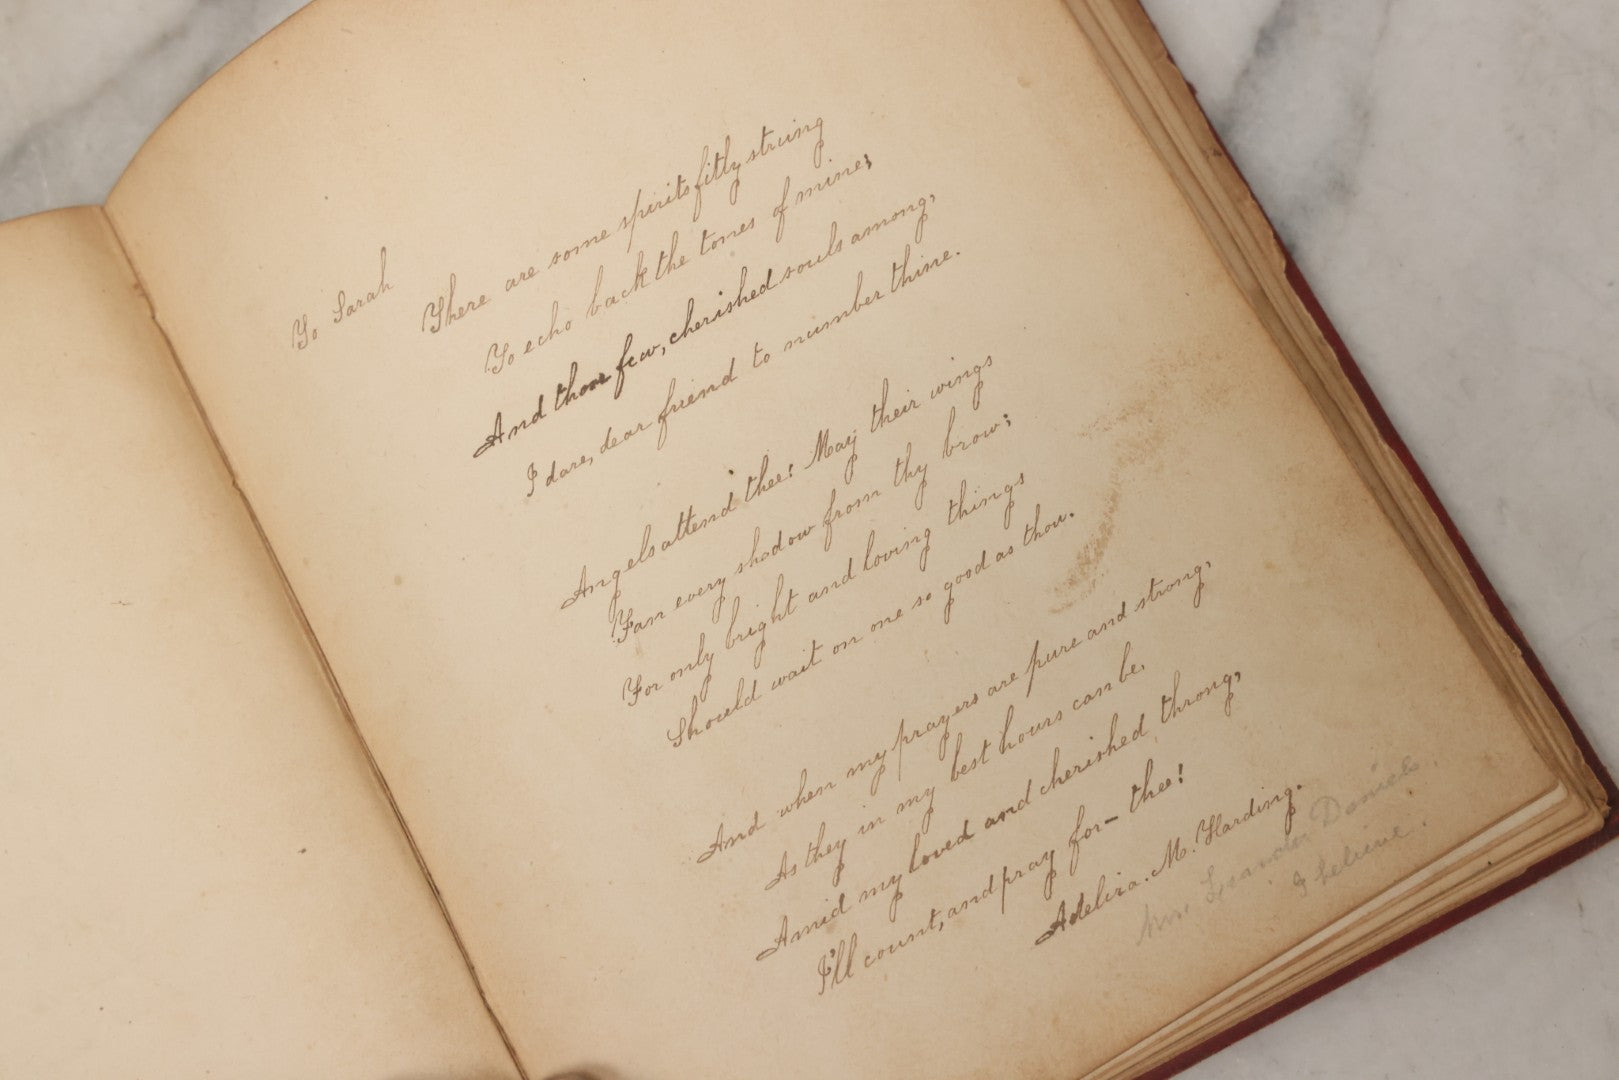 To Sarah
There are some spirits fitly strung
To echo back the tones of mine;
And those few, cherished souls among,
I dare, dear friend to number thine.
Angels attend thee! May their wings
Fan every shadow from thy brow;
For only bright and loving things
Should wait on one so good as thou.
And when my prayers are pure and strong,
As they in my best hours can be,
Amid my loved and cherished throng,
I'll count, and pray for— thee!
Adelira. M. Harding.
Mrs. Daniels.
I believe.